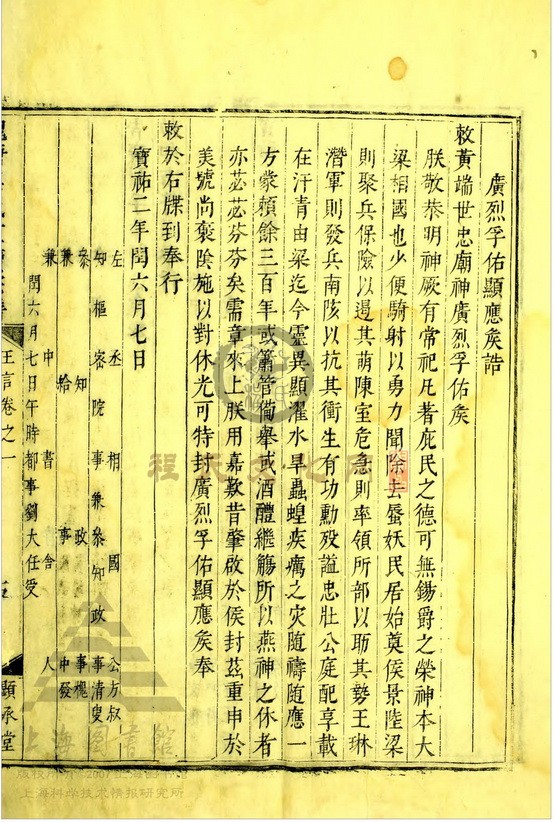 廣烈孚佑顯應矦誥
敕黃端世忠廟神廣烈孚佑矦
朕敬恭明神厥有常祀凡著庇民之德可無錫爵之榮神本大
梁相國也少便騎射以勇力聞除去蜃妖民居始奠侯景陸梁
則聚兵保險以遏其萌陳室危急則率領所部以助其勢王琳
潛軍則發兵南陔以抗其衝生有功勳歿謚忠壯公庭配享載
在汗青由梁迄今靈異顯濯水旱蟲蝗疾癘之灾隨禱隨應一
方蒙賴餘三百年或簫管備舉或酒醴繼觴所以燕神之休者
亦苾苾芬芬矣需章來上朕用嘉歎昔肇啟於侯封茲重申於
美號尚褒陰施以對休光可特封廣烈孚佑顯應矦奉
敕於右牒到奉行
寶祐二年閏六月七日
左丞相國公方叔
知樞密院事兼參知政事清叟
參知政事槐
兼給事中發
兼中書舍人
閏六月七日午時都事劉大任受
王言卷之一
顯承堂
程氏文化
上海圖書館
上海科学技术情报研究所